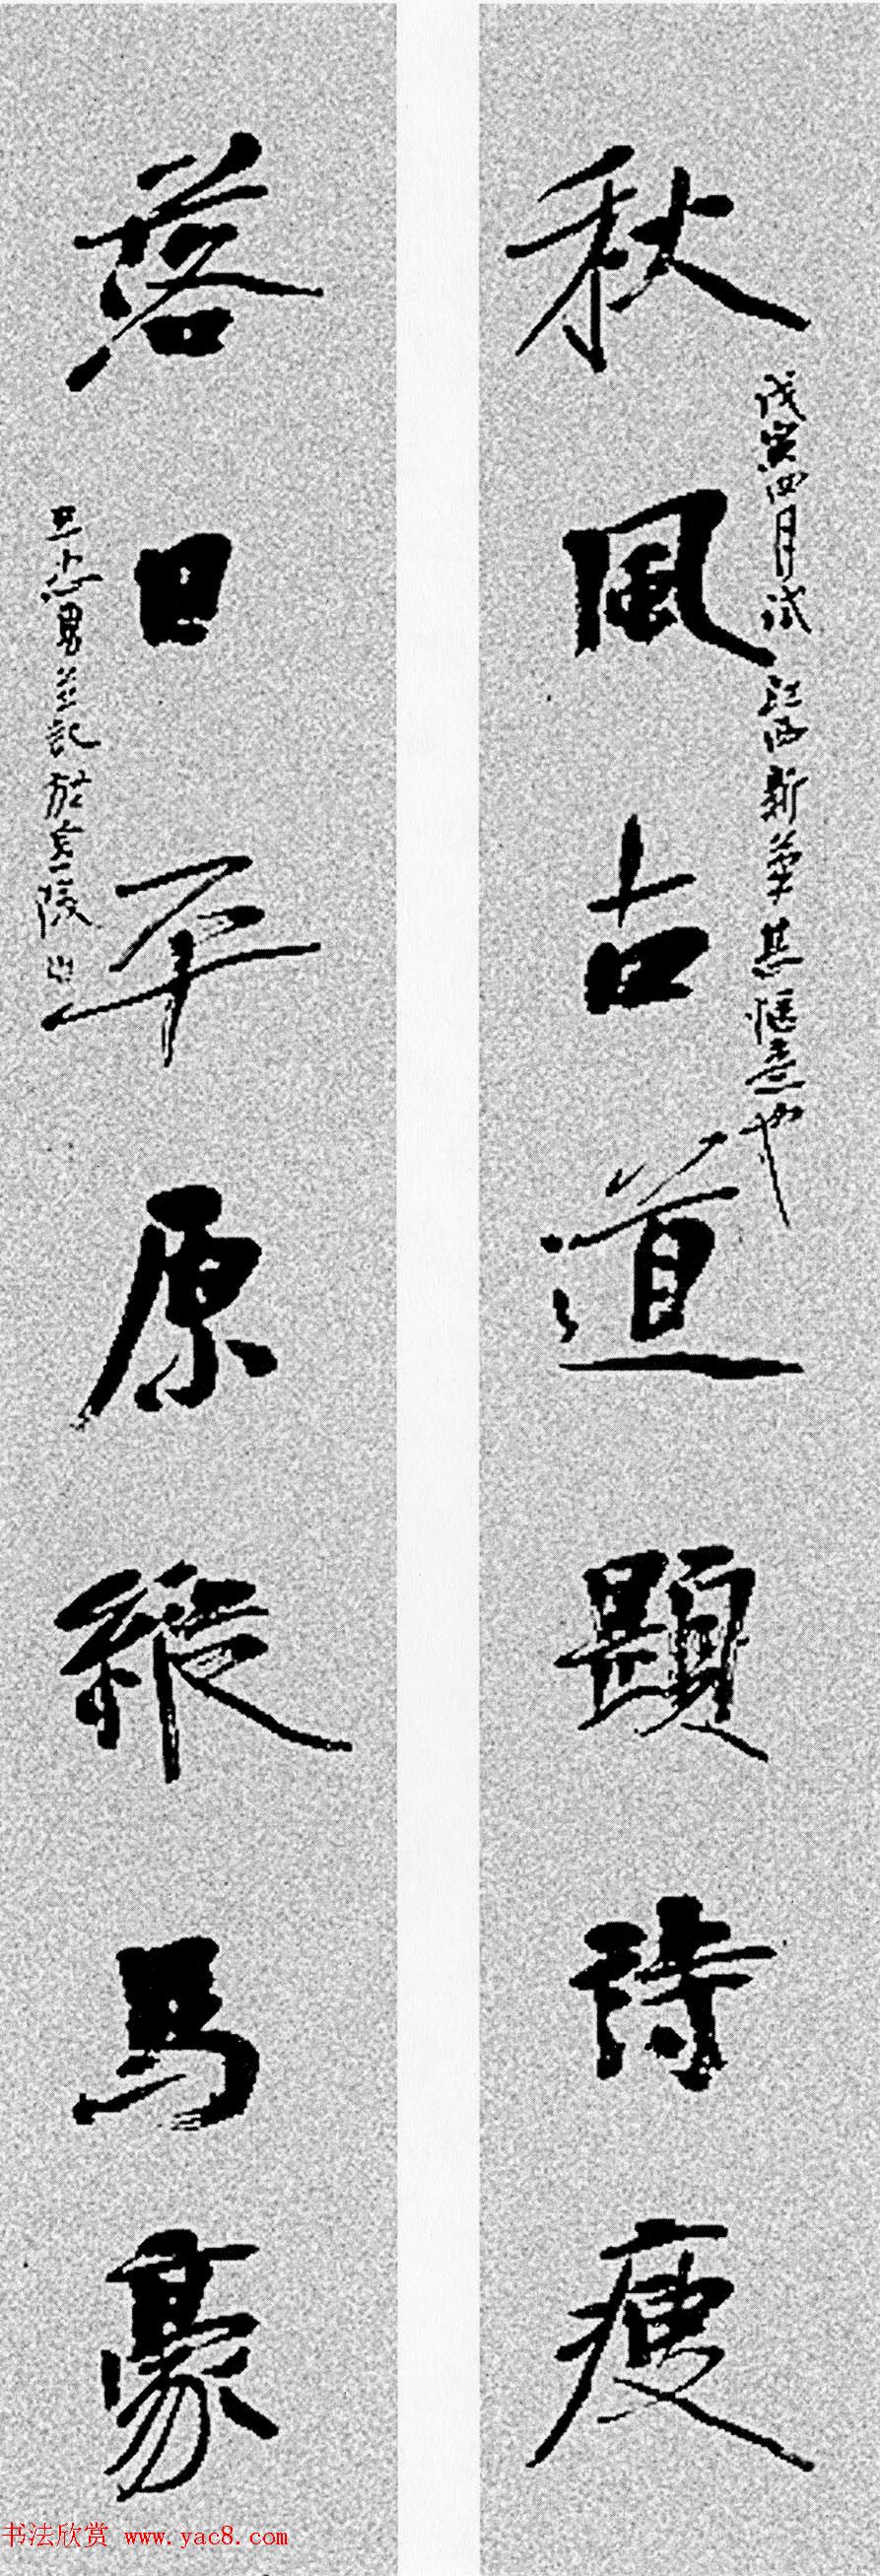 秋風古道題詩瘦
戊寅四月試江西新筆甚愜意也
落日平原縱馬豪
並記於金陵
书法欣赏 www.yac8.com